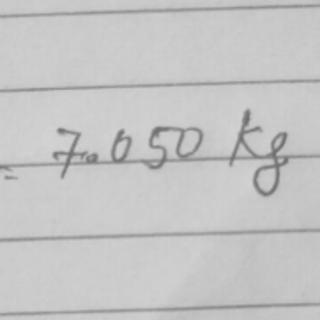 = 7.050 kg